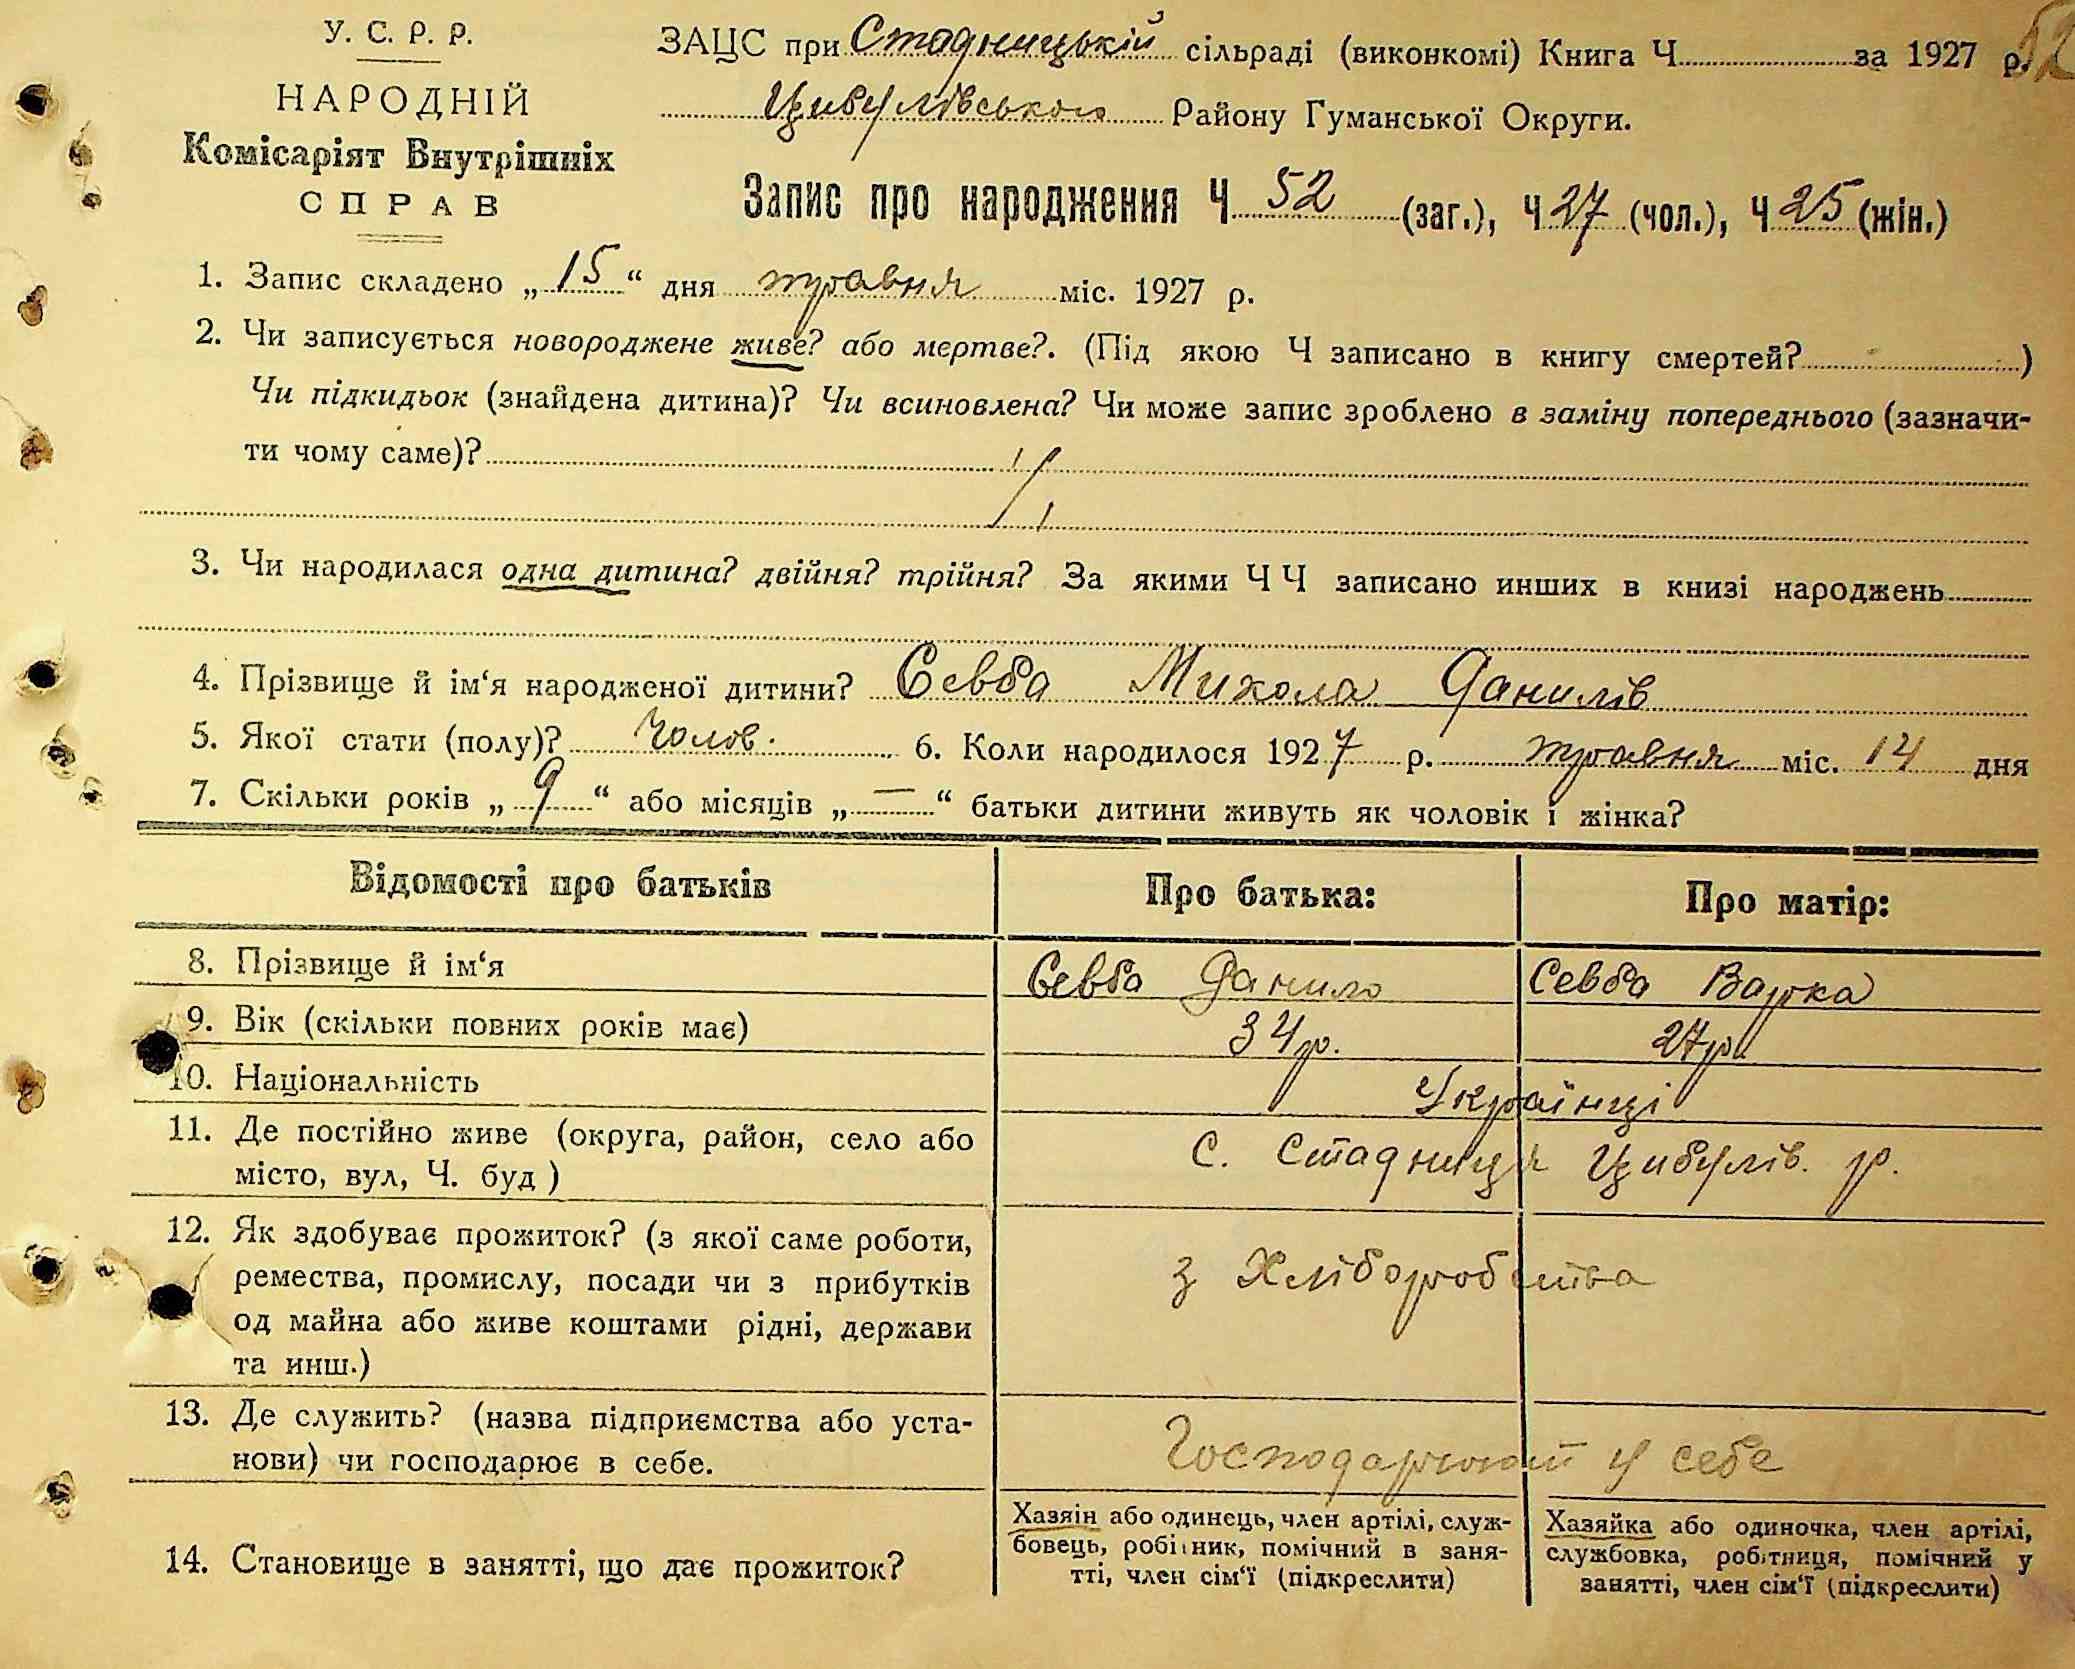 52
У. С. Р. Р.
НАРОДНІЙ
Комісаріят Внутрішніх
СПРАВ
ЗАЦС при Стадницькій сільраді (виконкомі) Книга Ч за 1927 р.
Цибулівського Району Гуманської Округи.
Запис про народження Ч 52 (заг.), Ч 27 (чол.), Ч 25 (жін.)
1. Запис складено „ 15 “ дня травня міс. 1927 р.
2. Чи записується новороджене живе? або мертве?. (Під якою Ч записано в книгу смертей? )
Чи підкидьок (знайдена дитина)? Чи всиновлена? Чи може запис зроблено в заміну попереднього (зазначи-
ти чому саме)?
3. Чи народилася одна дитина? двійня? трійня? За якими ЧЧ записано инших в книзі народжень
4. Прізвище й ім‘я народженої дитини? Севба Микола Данилів
5. Якої стати (полу)? Чолов. 6. Коли народилося 1927 р. травня міс. 14 дня
7. Скільки років „ 9 “ або місяців „ — “ батьки дитини живуть як чоловік і жінка?
Відомості про батьків Про батька: Про матір:
8. Прізвище й ім‘я Севба Данило Севба Варка
9. Вік (скільки повних років має) 34 р. 27 р.
10. Національність Українці
11. Де постійно живе (округа, район, село або
місто, вул, Ч. буд ) с. Стадниця Цибулів. р.
12. Як здобуває прожиток? (з якої саме роботи,
ремества, промислу, посади чи з прибутків
од майна або живе коштами рідні, держави
та инш.) з Хліборобства
13. Де служить? (назва підприємства або уста-
нови) чи господарює в себе. Господарюют у себе
14. Становище в занятті, що дає прожиток?
Хазяін або одинець, член артілі, служ-
бовець, робітник, помічний в заня-
тті, член сім‘ї (підкреслити)
Хазяйка або одиночка, член артілі,
службовка, робітниця, помічний у
занятті, член сім‘ї (підкреслити)